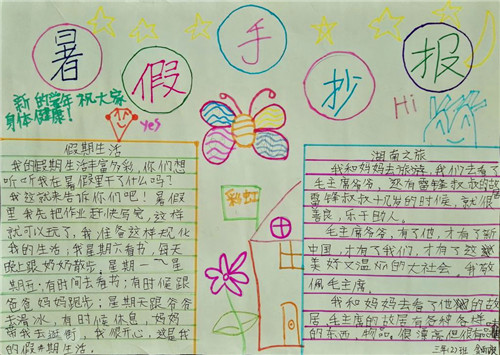 暑假手抄报
新的学年祝大家
身体健康!
yes
Hi
假期生活
我的假期生活丰富多彩,你们想
听听我在暑假里干了什么吗?
我这就来告诉你们吧!暑假
里我先把作业赶快写完,这样
就可以玩了,我准备这样规化
我的生活:我星期六看书,每天
晚上跟奶奶散步。星期一~星
期五:有时间去看书;有时候跟
爸爸妈妈跑步;星期天跟爷爷
去滑冰,有时候休息,妈妈
带我去逛街,我很开心,这是我
的假期生活。
彩虹
湖南之旅
我和妈妈去旅游,我们去看了
毛主席爷爷,还有雷锋叔叔的
雷锋叔叔十几岁的时候,就很
善良,乐于助人。
毛主席爷爷,有了他,才有了新
中国,才有了我们,才有了这
美好又温暖的大社会。
佩毛主席。
我和妈妈去看了他的故
居,毛主席的故居有各种各样
的东西,物品,很漂亮但很
三年(2)班